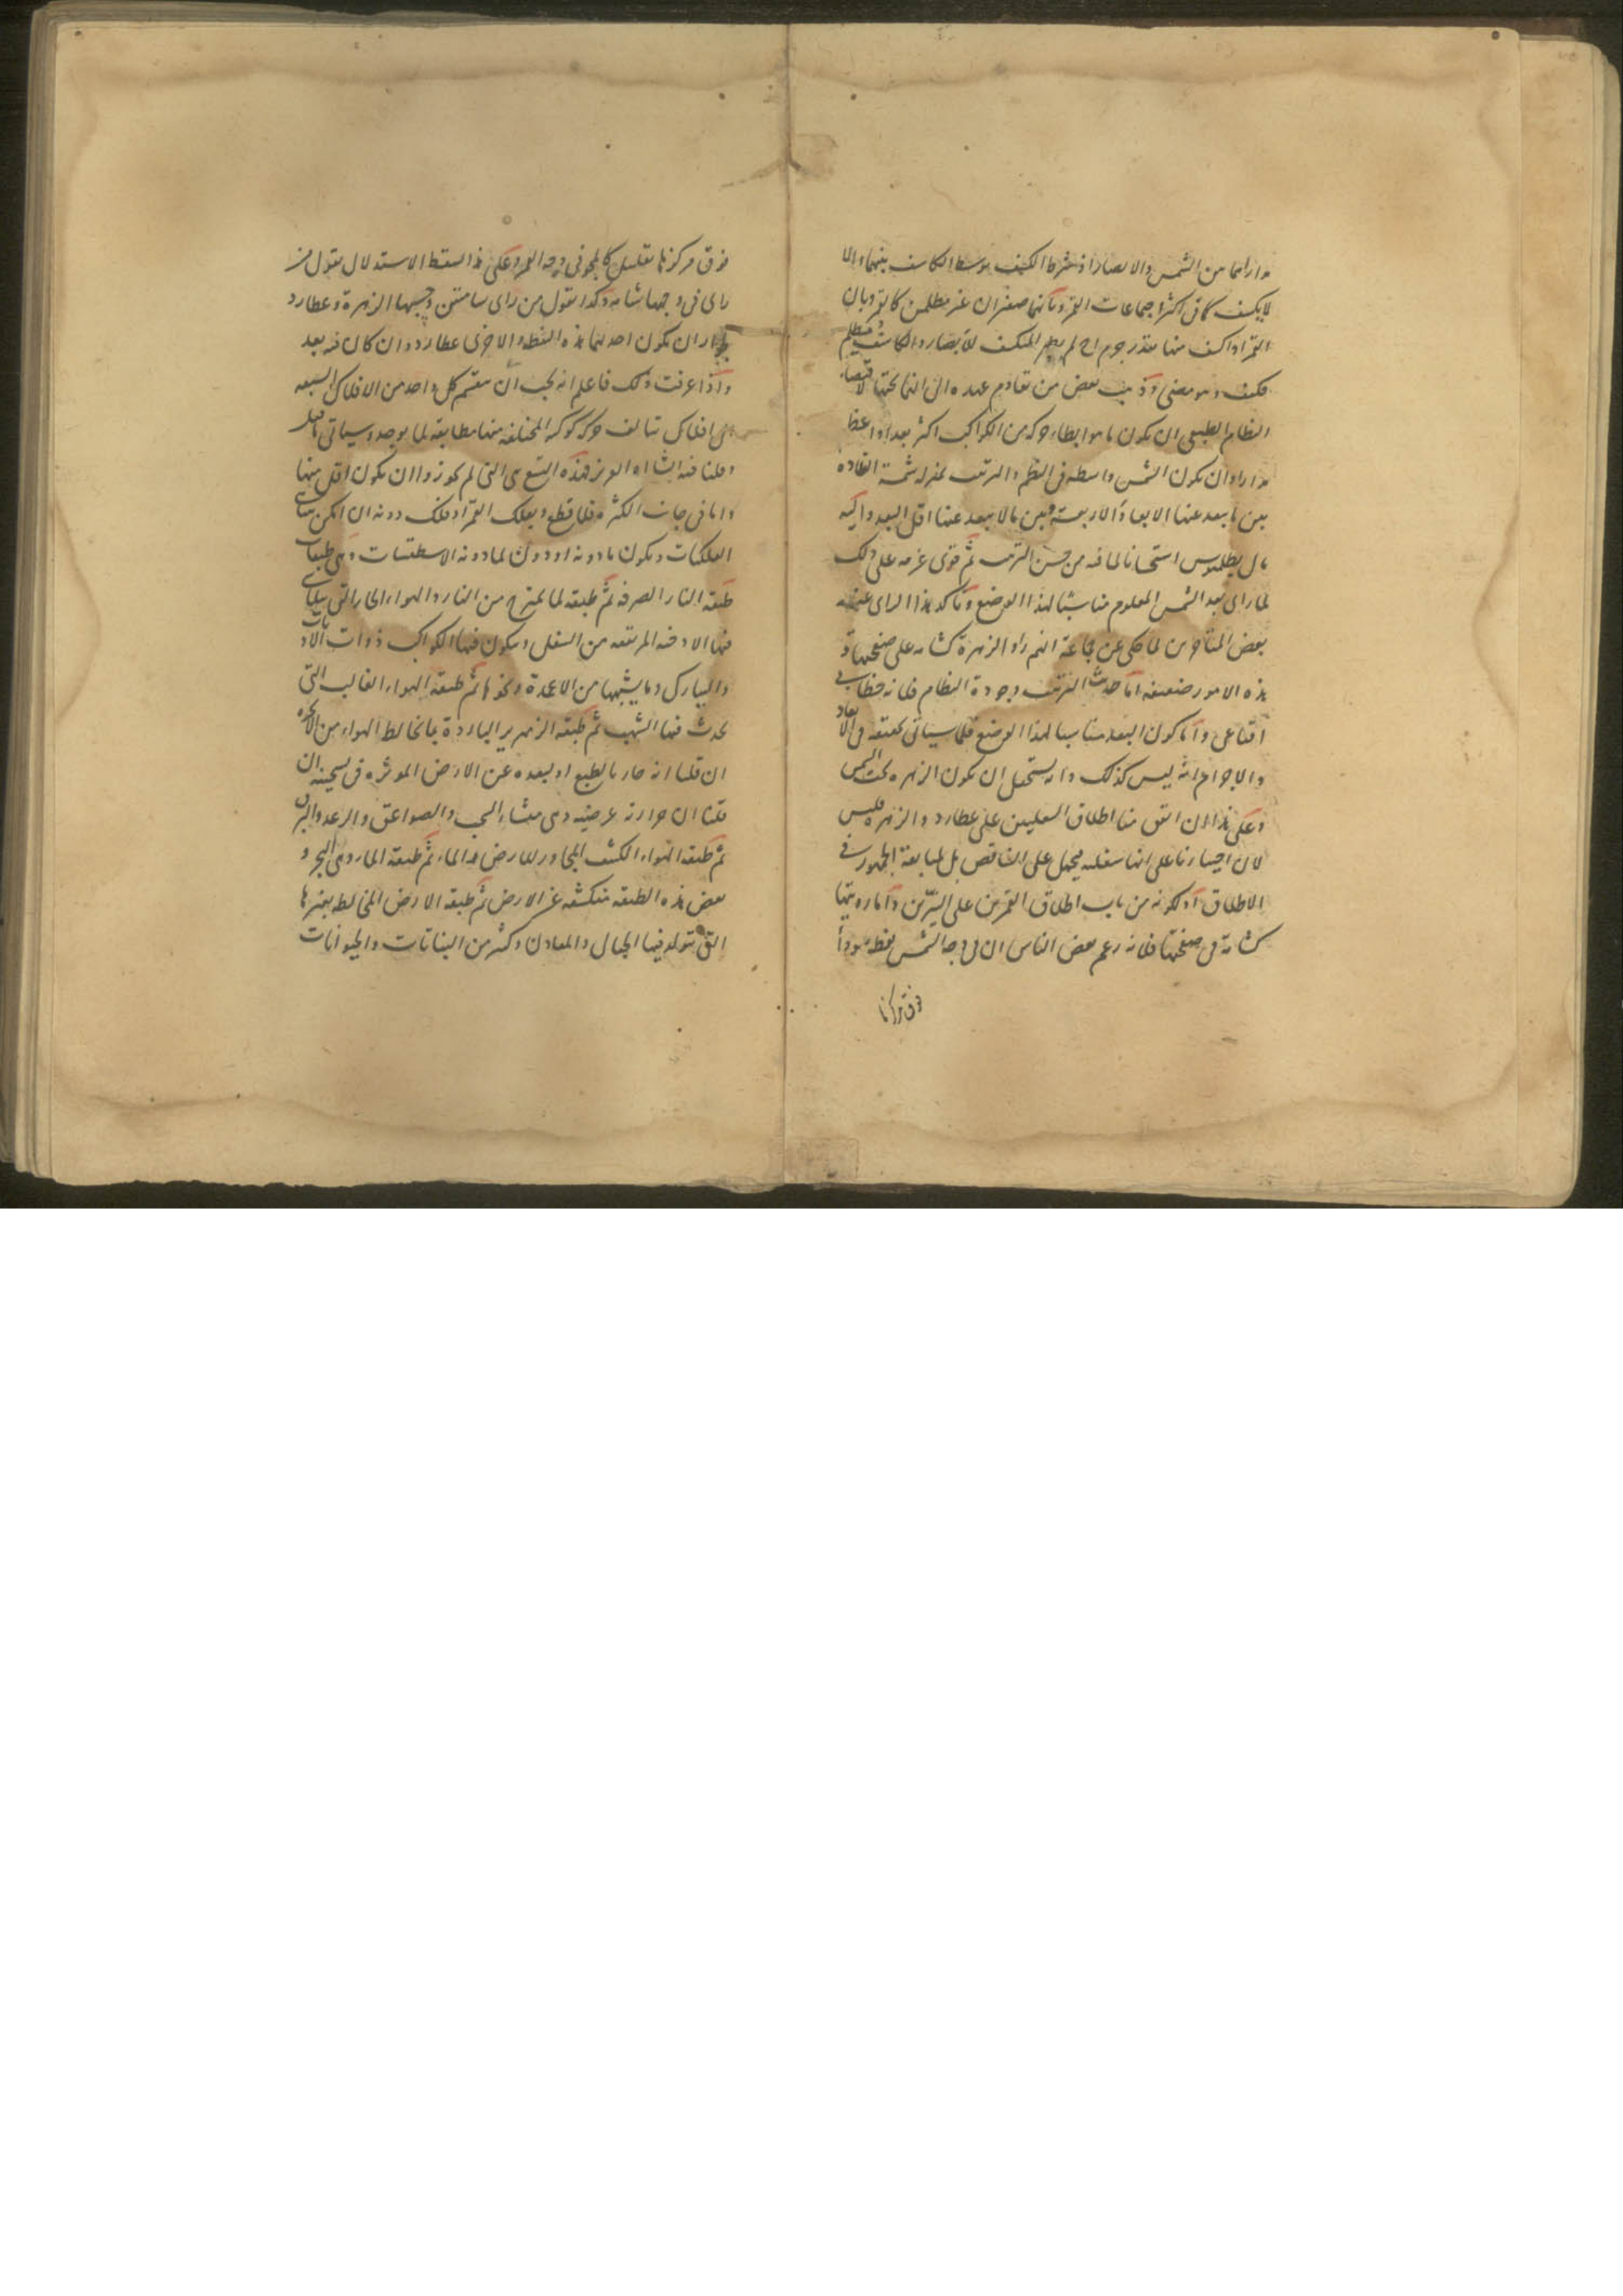 مداراهما من الشمس والابصار اذ شرط الكسف توسط الكاسف بينهما والا
لا يكسف كما فى اكثر اجماعات القمر وبانهما صغيران غير مظلمين كالقمر وبان
القمر اذا كسف منها بقدر جرم احدهما لم يظهر المنكسف للابصار والكاسف مظلم
فكيف وهو مضى وذهب بعض من تقادم عهده الى انهما تحتها لاقتضاء
النظام الطبيعى ان يكون ما هو ابطاء حركة من الكواكب اكثر بعدا واعظم
مدارا وان يكون الشمس واسطة فى النظم والترتيب بمنزلة شمسة القلادة
بين ما يبعد عنها الابعاد الاربعة وبين ما لا يبعد عنها اقل البعد واليه
مال بطلميوس استحسانا لما فيه من حسن الترتيب ثم قوى عزمه على ذلك
لما راى بعد الشمس المعلوم مناسبا لهذا الوضع وتاكد هذا الراى عند
بعض المتاخرين لما حكى عن جماعة انهم راوا الزهرة كشامة على صفحتها و
هذه الامور ضعيفة اما حديث الترتيب وجودة النظام فلانه خطابى
اقناعى واما كون البعد مناسبا لهذا الوضع فلما سياتى تحقيقه فى الابعاد
والاجرام انه ليس كذلك وانه يستحيل ان يكون الزهرة تحت الشمس
وعلى هذا ان اتفق منا اطلاق السفليين على عطارد والزهرة فليس
لان اختيارنا على انها سفلية فيحمل على التناقص بل لمتابعة الجمهور فى
الاطلاق او لكونه من باب اطلاق القمرين على النيرين واما رويتها
كشامة فى صفحتها فلانه زعم بعض الناس ان فى وجه الشمس نقطة سوداء
فوق مركزها
فوق مركزها بقليل كالمحو فى وجه القمر وعلى هذا سقط الاستدلال بقول من
راى فى وجهها شامة وكذا بقول من راى شامتين وحسبهما الزهرة وعطارد
لجواز ان يكون احديهما هذه النقطة والاخرى عطارد وان كان فيه بعد
واذا عرفت ذلك فاعلم انه يجب ان ينقسم كل واحد من الافلاك السبعة
الى افلاك تتالف حركة كوكبه المختلفة منها مطابقة لما يوجد وسياتى ما قيل
وقلنا فيه انشاء الله العزيز فهذه التسع هى التى لم يجوزوا ان يكون اقل منها
واما فى جانب الكثرة فلا قطع وبفلك القمر او فلك دونه ان امكن
الفلكيات ويكون ما دونه او دون لما دونه الاسطقسات وهى طبقات
طبقة النار الصرفة ثم طبقة لما يمتزج من النار والهواء الحار التى يتلاشى
فيها الادخنة المرتفعة من السفل ويتكون فيها الكواكب ذوات الاذناب
والنيازك وما يشبهها من الاعمدة ونحوها ثم طبقة الهواء الغالب التى
يحدث فيها الشهب ثم طبقة الزمهرير الباردة بما يخالط الهواء من الابخرة
ان قلنا انه حار بالطبع او لبعده عن الارض الموثرة فى تسخينه ان
قلنا ان حرارته عرضية وهى منشاء السحب والصواعق والرعد والبرق
ثم طبقة الهواء الكثيف المجاور للارض والماء ثم طبقة الماء وهى البحر و
بعض هذه الطبقة منكشفة عن الارض ثم طبقة الارض المخالطة بغيرها
التى تتولد فيها الجبال والمعادن وكثير من النباتات والحيوانات